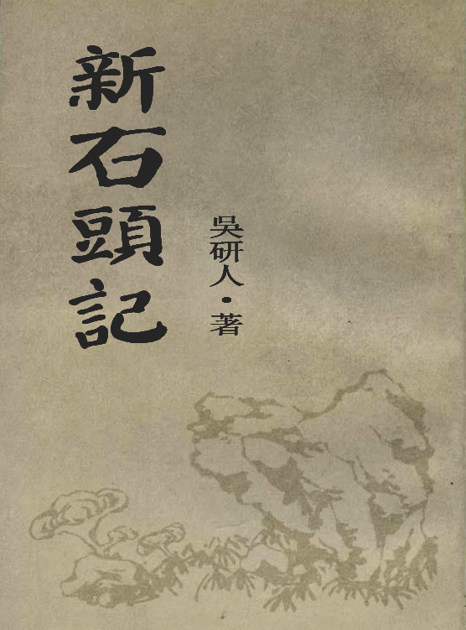 新石頭記
吳研人·著